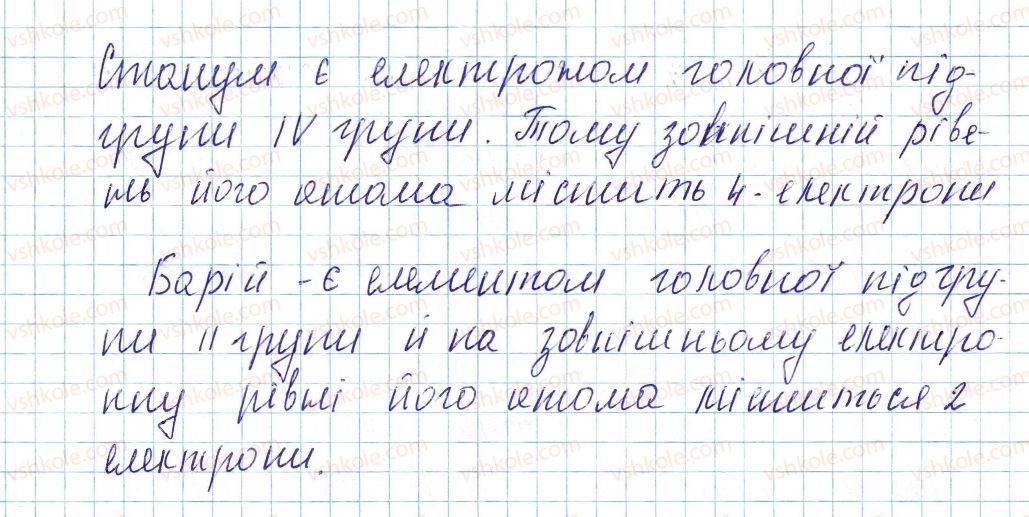 Станум є електроном головної під-
групи IV групи. Тому зовнішній ріве-
нь його атома містить 4-електрони
Барій - є елементом головної підгру-
пи II групи й на зовнішньому електро-
нну рівні його атома міститься 2
електрони.